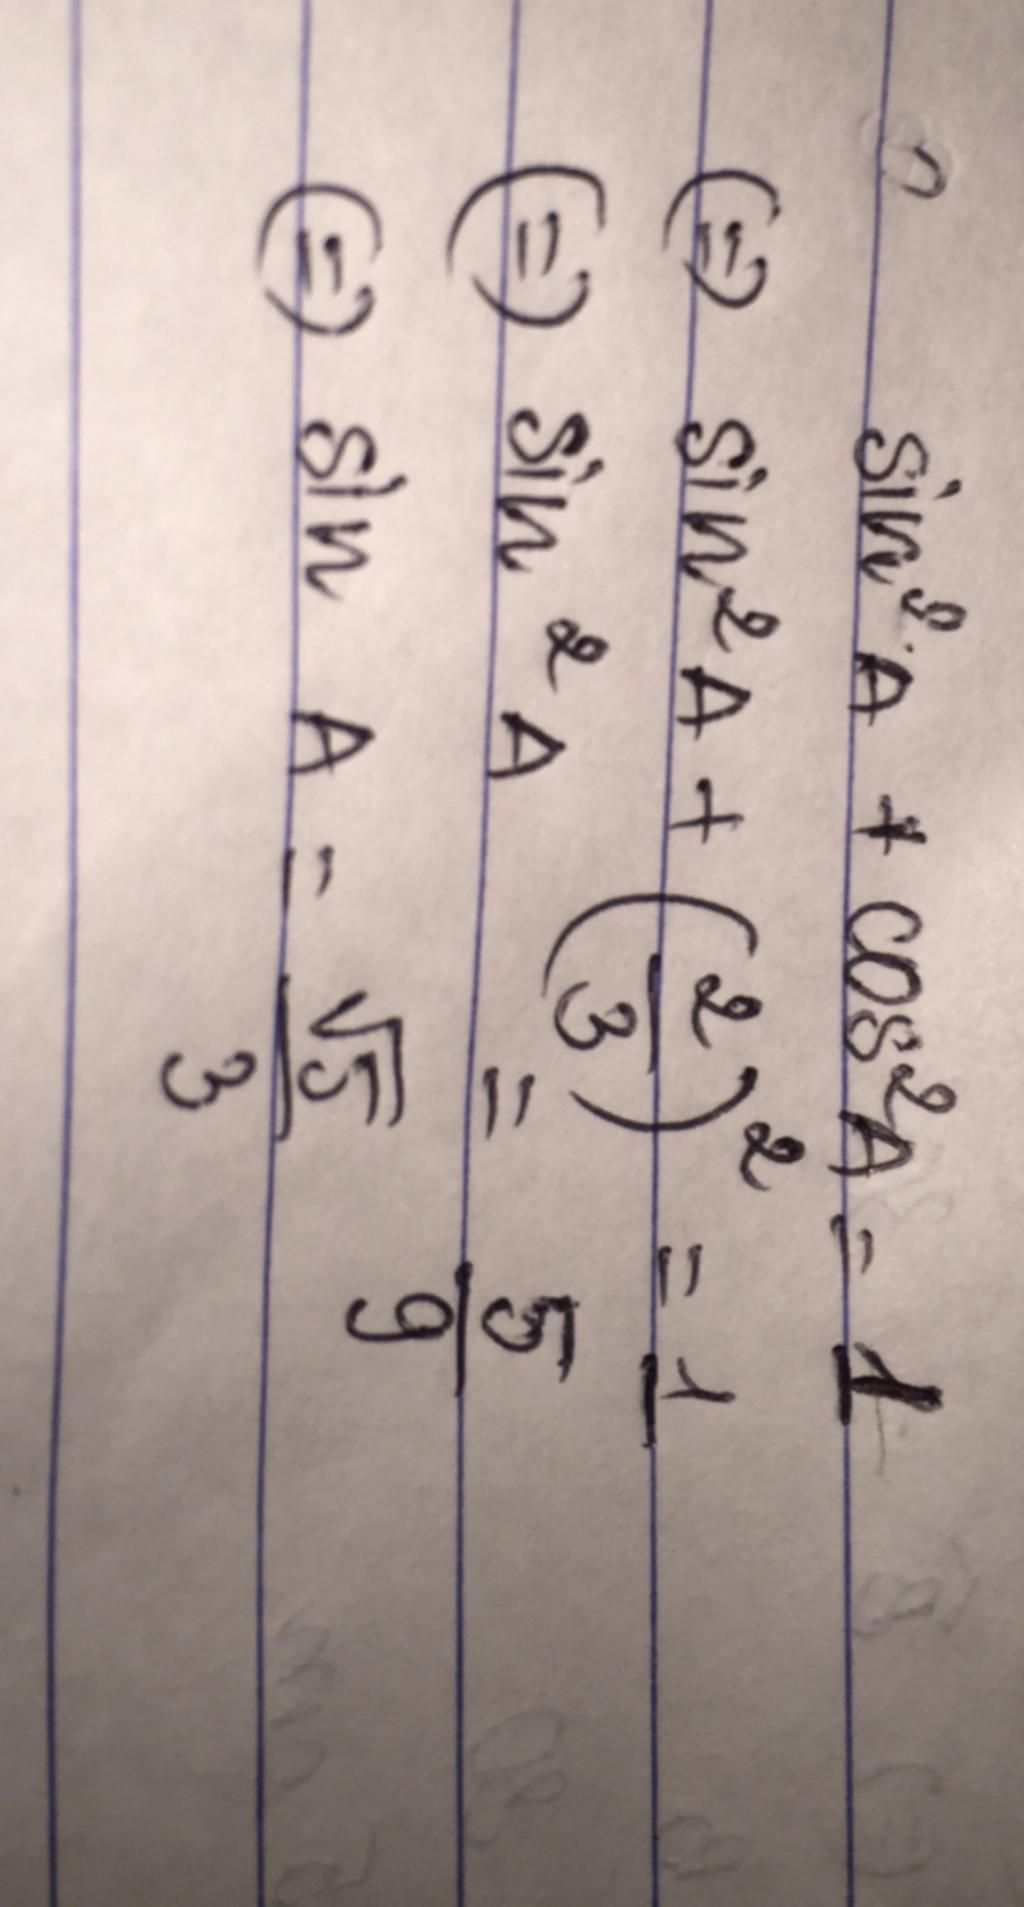 sin² A + cos² A = 1
(=) sin² A + (2/3)² = 1
(=) sin² A = 5/9
(=) sin A = √5/3